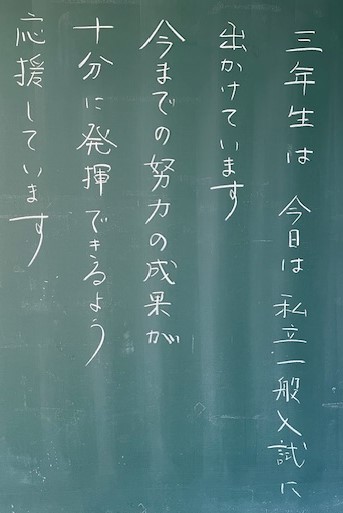 三年生は 今日は私立一般入試に
出かけています
今までの努力の成果が
十分に発揮できるよう
応援しています